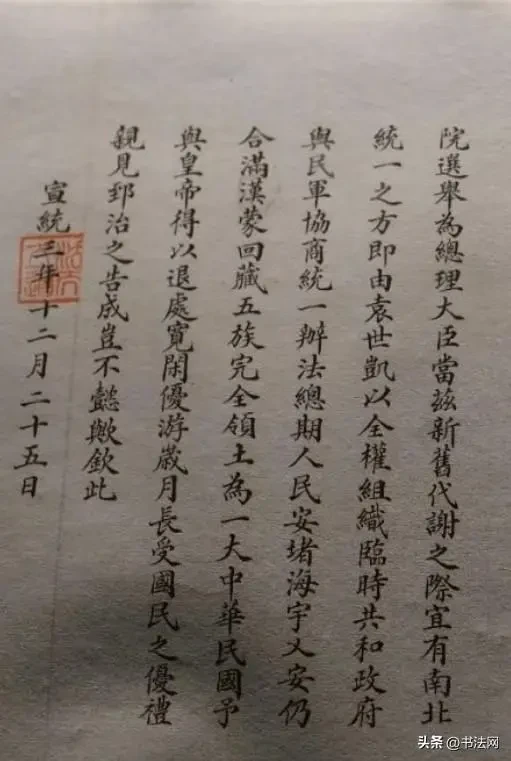 院選舉為總理大臣當茲新舊代謝之際宜有南北
統一之方即由袁世凱以全權組織臨時共和政府
與民軍協商統一辦法總期人民安堵海宇乂安仍
合滿漢蒙回藏五族完全領土為一大中華民國予
與皇帝得以退處寬閑優游歲月長受國民之優禮
親見郅治之告成豈不懿歟欽此
宣統三年十二月二十五日
头条 @书法网